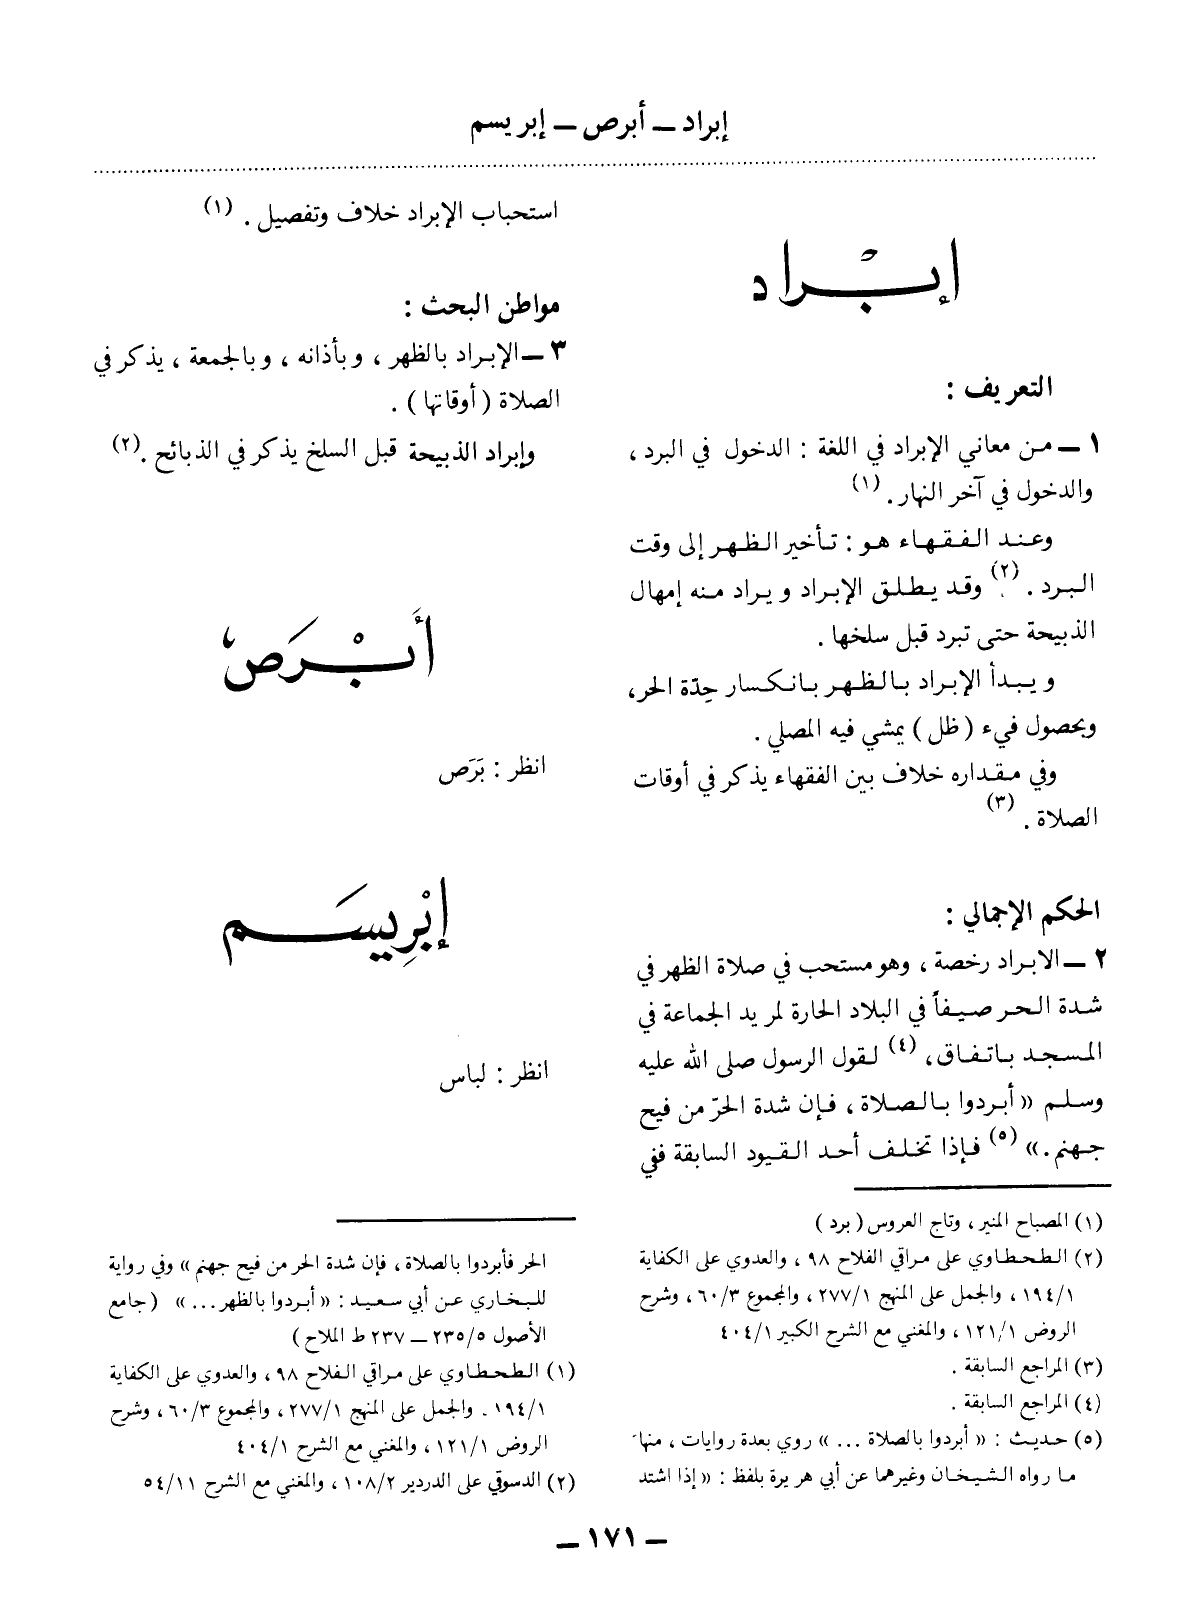 إبراد ــ أبرص ــ إبريسم
إبْراد
التعريف :
١ ــ من معاني الإبراد في اللغة : الدخول في البرد ،
والدخول في آخر النهار . (١)
وعند الفقهاء هو : تأخير الظهر إلى وقت
البرد . (٢) وقد يطلق الإبراد ويراد منه إمهال
الذبيحة حتى تبرد قبل سلخها .
ويبدأ الإبراد بالظهر بانكسار حِدّة الحر،
وبحصول فيء ( ظل ) يمشي فيه المصلي .
وفي مقداره خلاف بين الفقهاء يذكر في أوقات
الصلاة . (٣)
الحكم الإجمالي :
٢ ــ الابراد رخصة ، وهو مستحب في صلاة الظهر في
شدة الحر صيفاً في البلاد الحارة لمريد الجماعة في
المسجد باتفاق، (٤) لقول الرسول صلى الله عليه
وسلم « أبردوا بالصلاة ، فإن شدة الحرّ من فيح
جهنم .» (٥) فإذا تخلف أحد القيود السابقة ففي
(١) المصباح المنير ، وتاج العروس ( برد )
(٢) الطحطاوي على مراقي الفلاح ٩٨ ، والعدوي على الكفاية
١٩٤/١ ، والجمل على المنهج ٢٧٧/١ ، والمجموع ٦٠/٣ ، وشرح
الروض ١٢١/١ ، والمغني مع الشرح الكبير ٤٠٤/١
(٣) المراجع السابقة .
(٤) المراجع السابقة .
(٥) حديث : « أبردوا بالصلاة ... » روي بعدة روايات ، منها
ما رواه الشيخان وغيرهما عن أبي هريرة بلفظ : « إذا اشتد
استحباب الإبراد خلاف وتفصيل . (١)
مواطن البحث :
٣ ــ الإبراد بالظهر ، وبأذانه ، وبالجمعة ، يذكر في
الصلاة ( أوقاتها ) .
وإبراد الذبيحة قبل السلخ يذكر في الذبائح .(٢)
أَبْرَص
انظر : بَرَص
إبْرِيسَم
انظر : لباس
الحر فأبردوا بالصلاة ، فإن شدة الحر من فيح جهنم » وفي رواية
للبخاري عن أبي سعيد : « أبردوا بالظهر ... » ( جامع
الأصول ٢٣٥/٥ ــ ٢٣٧ ط الملاح )
(١) الطحطاوي على مراقي الفلاح ٩٨ ، والعدوي على الكفاية
١٩٤/١ . والجمل على المنهج ٢٧٧/١ ، والمجموع ٦٠/٣ ، وشرح
الروض ١٢١/١ ، والمغني مع الشرح ٤٠٤/١
(٢) الدسوقي على الدردير ١٠٨/٢ ، والمغني مع الشرح ٥٤/١١
ــ ١٧١ ــ